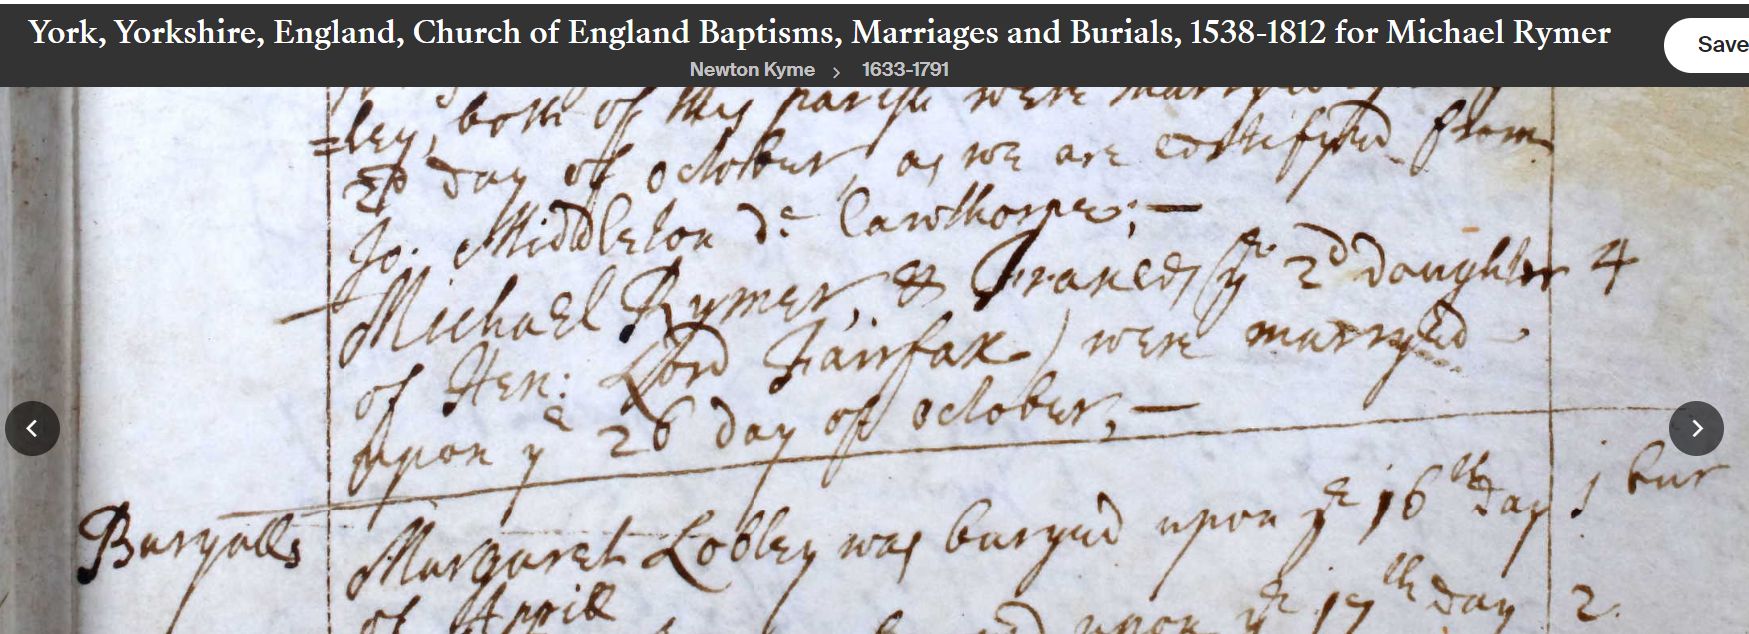 York, Yorkshire, England, Church of England Baptisms, Marriages and Burials, 1538-1812 for Michael Rymer
Save
Newton Kyme > 1633-1791
=ley, both of this parish were
2d day of October, as we are certifyed from
Jo: Middleton de Cawthorpe;—
Michael Rymer, & Frances (ye 2d daughter 4
of Hen: Lord Fairfax) were marryed
upon ye 26 day of October,—
Buryalls Margaret Lobley was buryed upon ye 16th day 1 bur
of Aprill
upon ye 17th day 2.